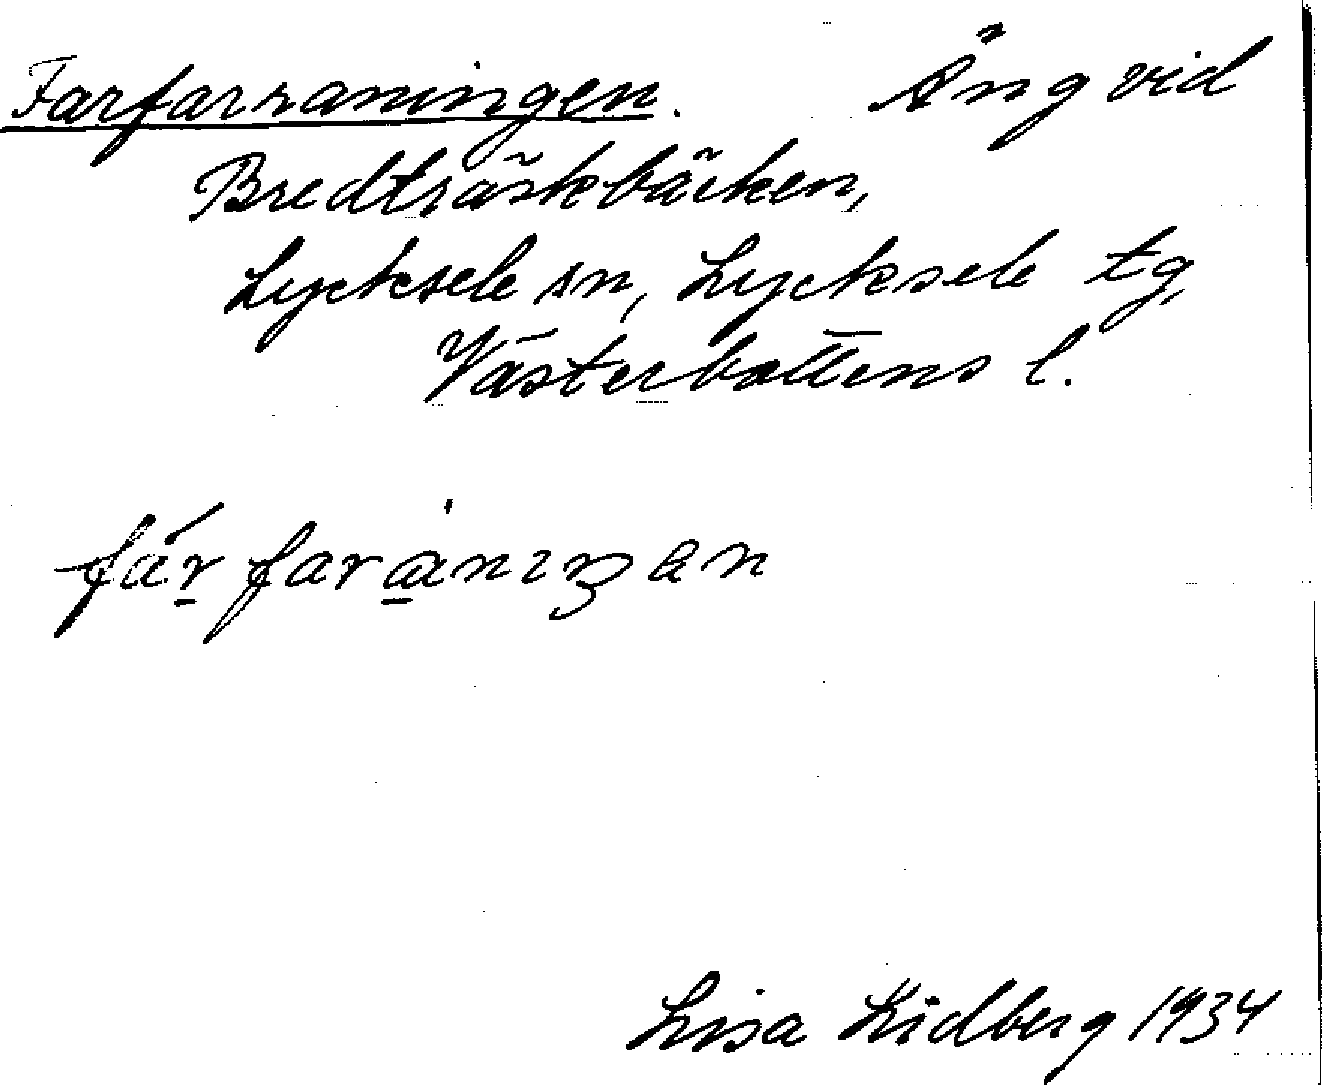 Farfarraningen. Äng vid
Bredträskbäcken,
Lycksele sn, Lycksele tg,
Västerbottens l.
Lisa Lidberg 1934